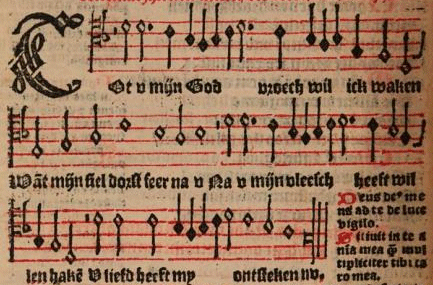 TOt v mijn God vroech wil ick waken
Wāt mijn siel dorst seer na v Na v mijn vleesch heeft wil
len hakē V liefd heeft my ontsteken nv,
Deus deꝰ me
us ad te de luce
vigilo.
Sitiuit in te a
nia mea q̄ mul
tipliciter tibi ca
ro mea.